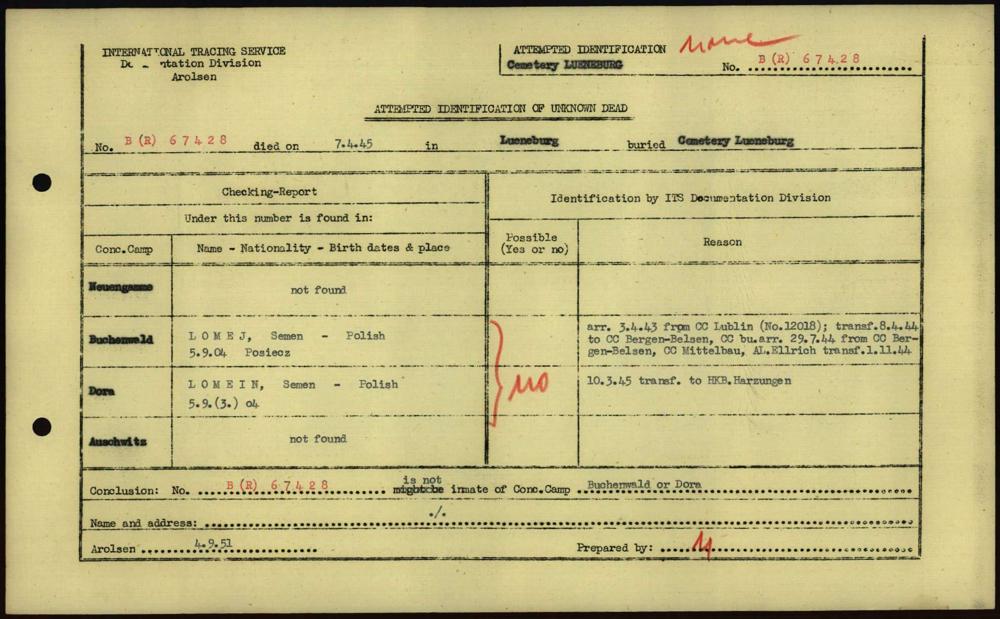 INTERNATIONAL TRACING SERVICE
Documentation Division
Arolsen
ATTEMPTED IDENTIFICATION
Cemetery LUENEBURG
None
No. B (R) 67428
ATTEMPTED IDENTIFICATION OF UNKNOWN DEAD
No. B (R) 67428 died on 7.4.45 in Lueneburg buried Cemetery Lueneburg
Checking-Report
Under this number is found in:
Identification by ITS Documentation Division
Conc.Camp
Name - Nationality - Birth dates & place
Possible
(Yes or no)
Reason
Neuengamme
not found
Buchenwald
LOMEJ, Semen - Polish
5.9.04 Posiecz
arr. 3.4.43 from CC Lublin (No.12018); transf.8.4.44
to CC Bergen-Belsen, CC bu.arr. 29.7.44 from CC Ber-
gen-Belsen, CC Mittelbau, AL.Ellrich transf.1.11.44
no
Dora
LOMEIN, Semen - Polish
5.9.(3.) 04
10.3.45 transf. to HKB.Harzungen
Auschwitz
not found
is not
Conclusion: No. B (R) 67428 might be inmate of Conc.Camp Buchenwald or Dora
Name and address: ./.
Arolsen 4.9.51 Prepared by: